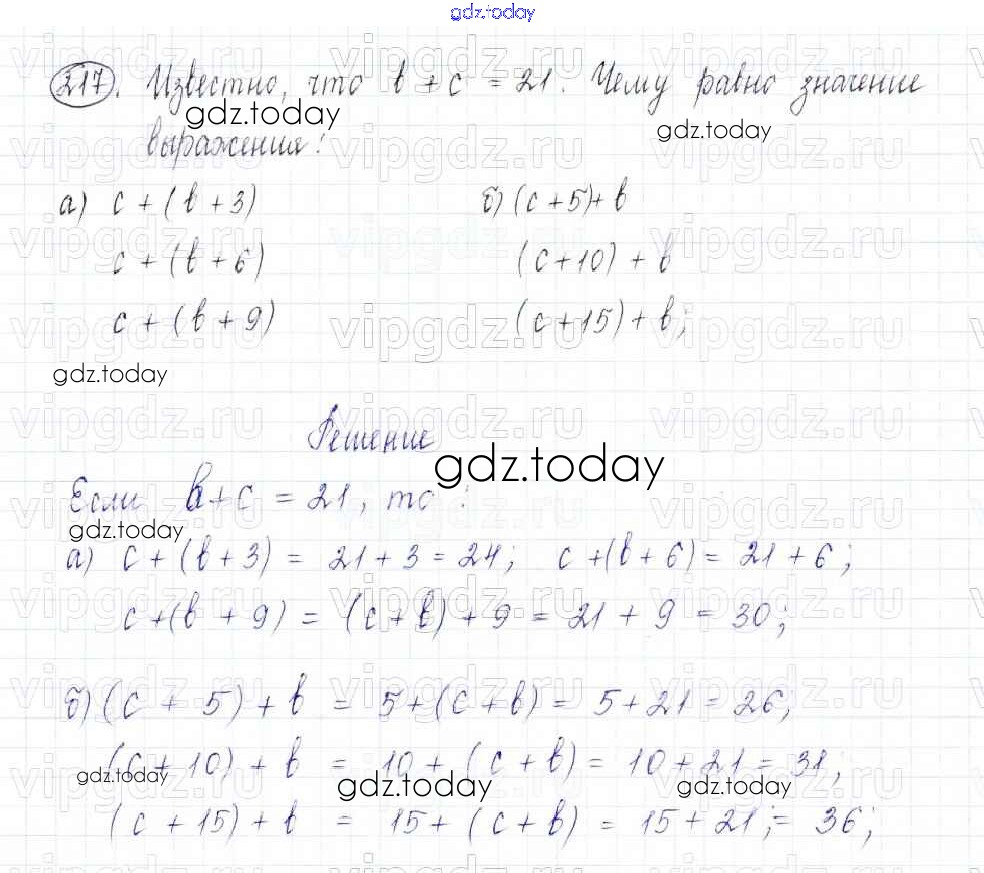 gdz.today
217. Известно, что в + с = 21. Чему равно значение
gdz.today gdz.today
выражения:
а) с + (в + 3) б) (с + 5) + в
с + (в + 6) (с + 10) + в
с + (в + 9) (с + 15) + в;
gdz.today
Решение
gdz.today
Если в + с = 21, то :
gdz.today
а) с + (в + 3) = 21 + 3 = 24; с + (в + 6) = 21 + 6;
с + (в + 9) = (с + в) + 9 = 21 + 9 = 30;
б) (с + 5) + в = 5 + (с + в) = 5 + 21 = 26;
(с + 10) + в = 10 + (с + в) = 10 + 21 = 31;
gdz.today gdz.today gdz.today
(с + 15) + в = 15 + (с + в) = 15 + 21; = 36;
vipgdz.ru